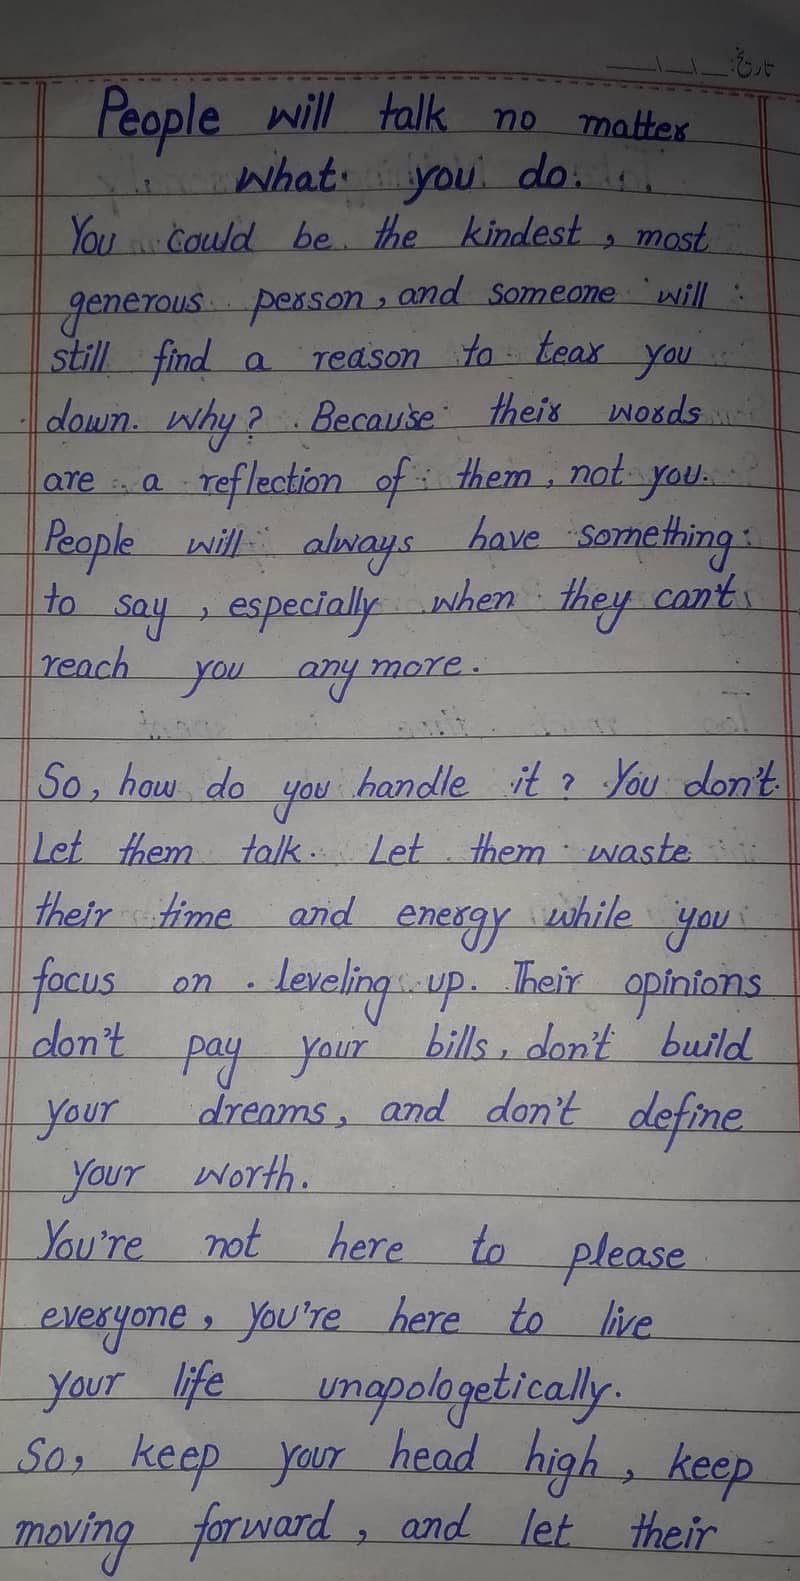 تاریخ:
People will talk no matter
what you do.
You could be the kindest, most
generous person, and someone will
still find a reason to tear you
down. Why? Because their words
are a reflection of them, not you.
People will always have something
to say, especially when they can't
reach you anymore.
So, how do you handle it? You don't.
Let them talk. Let them waste
their time and energy while you
focus on leveling up. Their opinions
don't pay your bills, don't build
your dreams, and don't define
your worth.
You're not here to please
everyone, you're here to live
your life unapologetically.
So, keep your head high, keep
moving forward, and let their